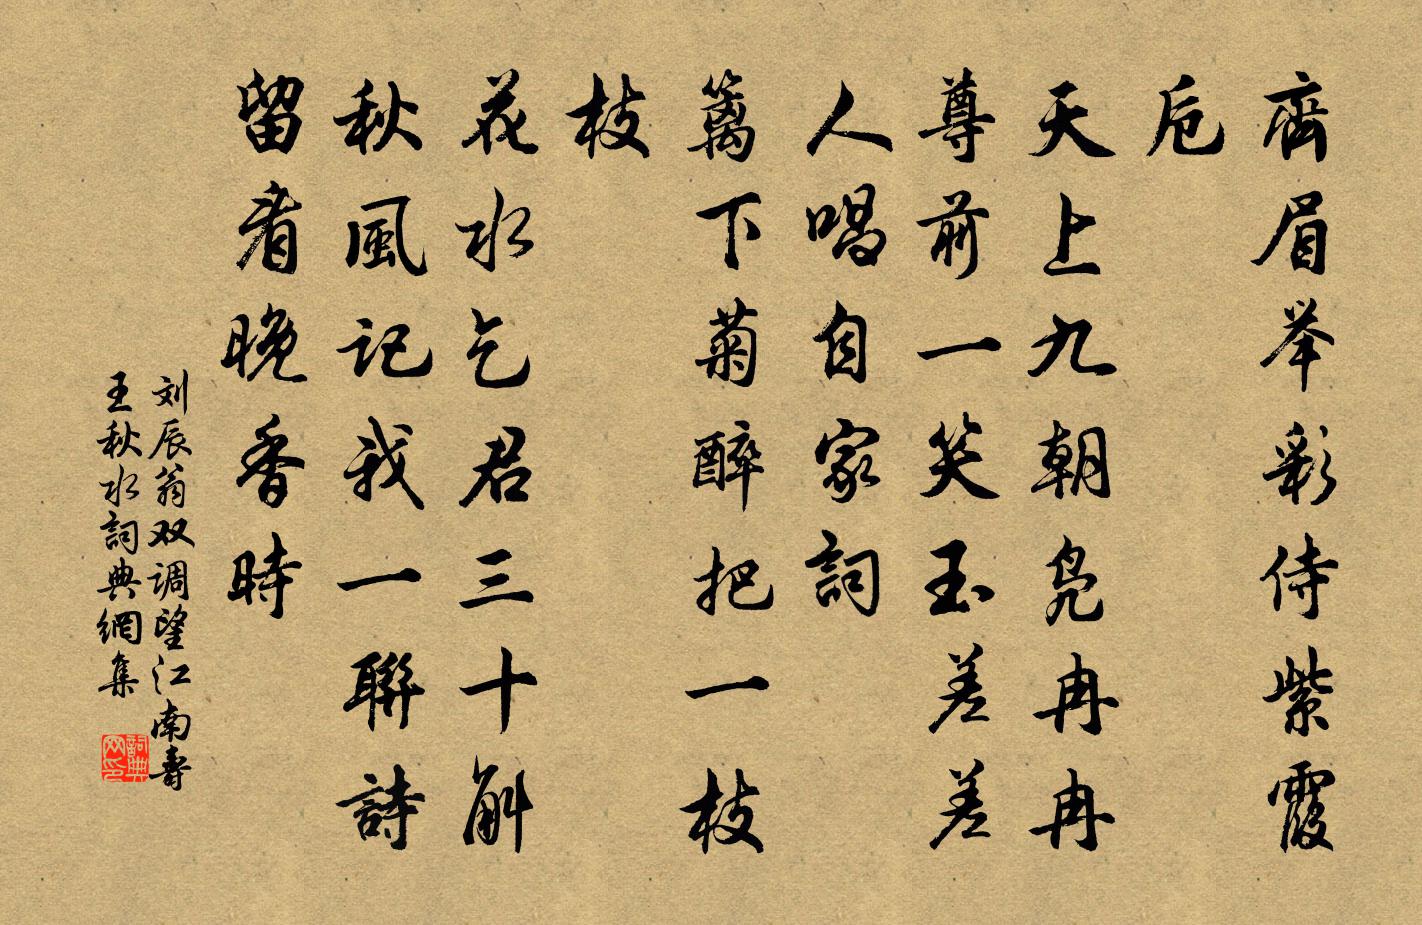 齊眉举彩侍紫霞
卮
天上九朝凫冉冉
尊前一笑玉差差
人唱自家詞
篱下菊醉把一枝
枝
花水乞君三十斛
秋風記我一聯詩
留看晚香時
刘辰翁双调望江南壽
王秋水詞典網集
詞典
网印